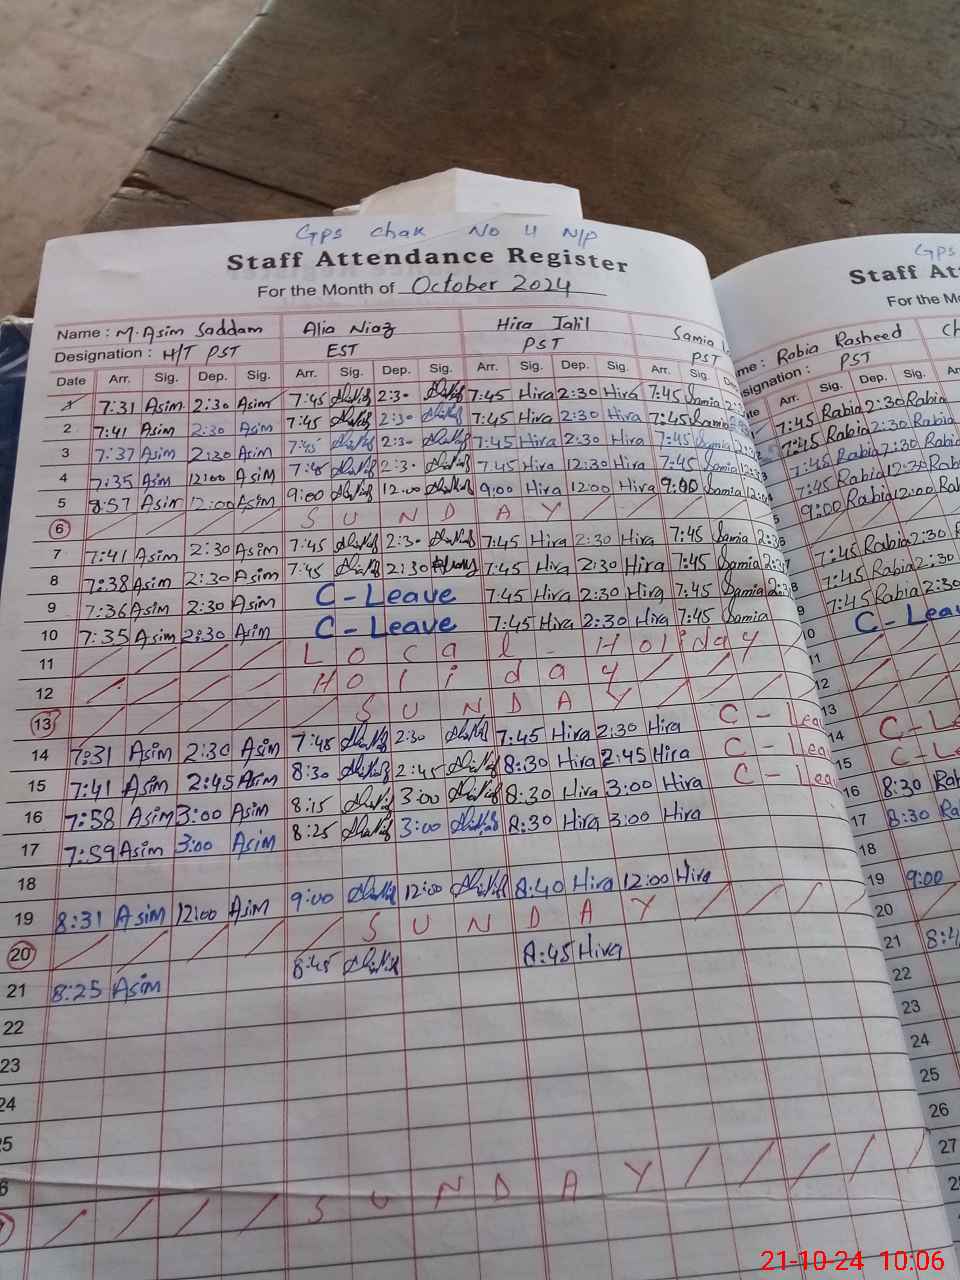 GPS Chak No 4 N/P
Staff Attendance Register
For the Month of October 2024
Name : M. Asim Saddam Alia Niaz Hira Jalil Samia
Designation : H/T PST EST PST PST
Date Arr. Sig. Dep. Sig. Arr. Sig. Dep. Sig. Arr. Sig. Dep. Sig. Arr. Sig.
1 7:31 Asim 2:30 Asim 7:45 2:30 7:45 Hira 2:30 Hira 7:45 Samia
2 7:41 Asim 2:30 Asim 7:45 2:30 7:45 Hira 2:30 Hira 7:45 Samia
3 7:37 Asim 2:30 Asim 7:45 2:30 7:45 Hira 2:30 Hira 7:45 Samia
4 7:35 Asim 12:00 Asim 7:45 7:45 Hira 12:30 Hira 7:45 Samia
5 8:57 Asim 12:00 Asim 9:00 12:00 9:00 Hira 12:00 Hira 9:00 Samia
6 S U N D A Y
7 7:41 Asim 2:30 Asim 7:45 2:30 7:45 Hira 2:30 Hira 7:45 Samia
8 7:38 Asim 2:30 Asim 7:45 2:30 7:45 Hira 2:30 Hira 7:45 Samia
9 7:36 Asim 2:30 Asim C - Leave 7:45 Hira 2:30 Hira 7:45 Samia
10 7:35 Asim 2:30 Asim C - Leave 7:45 Hira 2:30 Hira 7:45 Samia
11 L o c a l - H o l i d a y
12 H o l i d a y
13 S U N D A Y
14 7:31 Asim 2:30 Asim 7:45 2:30 7:45 Hira 2:30 Hira C - Lea
15 7:41 Asim 2:45 Asim 8:30 2:45 8:30 Hira 2:45 Hira C - Lea
16 7:58 Asim 3:00 Asim 8:15 3:00 8:30 Hira 3:00 Hira C - Lea
17 7:59 Asim 3:00 Asim 8:25 3:00 8:30 Hira 3:00 Hira
18
19 8:31 Asim 12:00 Asim 9:00 12:00 8:40 Hira 12:00 Hira
20 S U N D A Y
21 8:25 Asim 8:45 8:45 Hira
22
23
24
25
S U N D A Y
GPS
Staff At
For the Mo
me : Rabia Rasheed
signation : PST
Arr. Sig. Dep. Sig.
7:45 Rabia 2:30 Rabia
7:45 Rabia 2:30 Rabia
7:45 Rabia 2:30 Rabia
7:45 Rabia 12:30 Rab
9:00 Rabia 12:00 Rab
7:45 Rabia 2:30
8 7:45 Rabia 2:30
9 7:45 Rabia 2:30
10 C - Leav
11
12
13
14 C - Le
15 C - Le
16 8:30 Rab
17 8:30 Ra
18
19 9:00
20
21 8:4
22
23
24
25
26
27
21-10-24 10:06